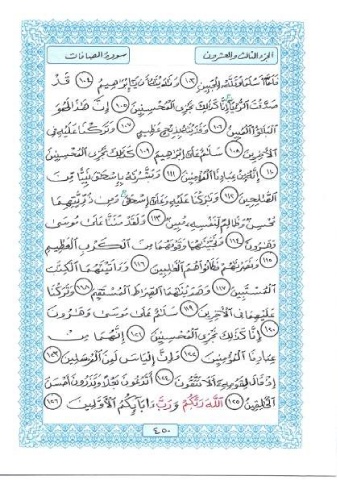 الجزء الثالث والعشرون    سورة الصافات
فَلَمَّآ أَسْلَمَا وَتَلَّهُۥ لِلْجَبِينِ ١٠٣ وَنَٰدَيْنَٰهُ أَن يَٰٓإِبْرَٰهِيمُ ١٠٤ قَدْ
صَدَّقْتَ ٱلرُّءْيَآ إِنَّا كَذَٰلِكَ نَجْزِى ٱلْمُحْسِنِينَ ١٠٥ إِنَّ هَٰذَا لَهُوَ
ٱلْبَلَٰٓؤُا۟ ٱلْمُبِينُ ١٠٦ وَفَدَيْنَٰهُ بِذِبْحٍ عَظِيمٍ ١٠٧ وَتَرَكْنَا عَلَيْهِ فِى
ٱلْءَاخِرِينَ ١٠٨ سَلَٰمٌ عَلَىٰٓ إِبْرَٰهِيمَ ١٠٩ كَذَٰلِكَ نَجْزِى ٱلْمُحْسِنِينَ
١١٠ إِنَّهُۥ مِنْ عِبَادِنَا ٱلْمُؤْمِنِينَ ١١١ وَبَشَّرْنَٰهُ بِإِسْحَٰقَ نَبِيًّا مِّنَ
ٱلصَّٰلِحِينَ ١١٢ وَبَٰرَكْنَا عَلَيْهِ وَعَلَىٰٓ إِسْحَٰقَ وَمِن ذُرِّيَّتِهِمَا
مُحْسِنٌ وَظَالِمٌ لِّنَفْسِهِۦ مُبِينٌ ١١٣ وَلَقَدْ مَنَنَّا عَلَىٰ مُوسَىٰ
وَهَٰرُونَ ١١٤ وَنَجَّيْنَٰهُمَا وَقَوْمَهُمَا مِنَ ٱلْكَرْبِ ٱلْعَظِيمِ
١١٥ وَنَصَرْنَٰهُمْ فَكَانُوا۟ هُمُ ٱلْغَٰلِبِينَ ١١٦ وَءَاتَيْنَٰهُمَا ٱلْكِتَٰبَ
ٱلْمُسْتَبِينَ ١١٧ وَهَدَيْنَٰهُمَا ٱلصِّرَٰطَ ٱلْمُسْتَقِيمَ ١١٨ وَتَرَكْنَا
عَلَيْهِمَا فِى ٱلْءَاخِرِينَ ١١٩ سَلَٰمٌ عَلَىٰ مُوسَىٰ وَهَٰرُونَ
١٢٠ إِنَّا كَذَٰلِكَ نَجْزِى ٱلْمُحْسِنِينَ ١٢١ إِنَّهُمَا مِنْ
عِبَادِنَا ٱلْمُؤْمِنِينَ ١٢٢ وَإِنَّ إِلْيَاسَ لَمِنَ ٱلْمُرْسَلِينَ ١٢٣
إِذْ قَالَ لِقَوْمِهِۦٓ أَلَا تَتَّقُونَ ١٢٤ أَتَدْعُونَ بَعْلًا وَتَذَرُونَ أَحْسَنَ
ٱلْخَٰلِقِينَ ١٢٥ ٱللَّهَ رَبَّكُمْ وَرَبَّ ءَابَآئِكُمُ ٱلْأَوَّلِينَ ١٢٦
٤٥٠